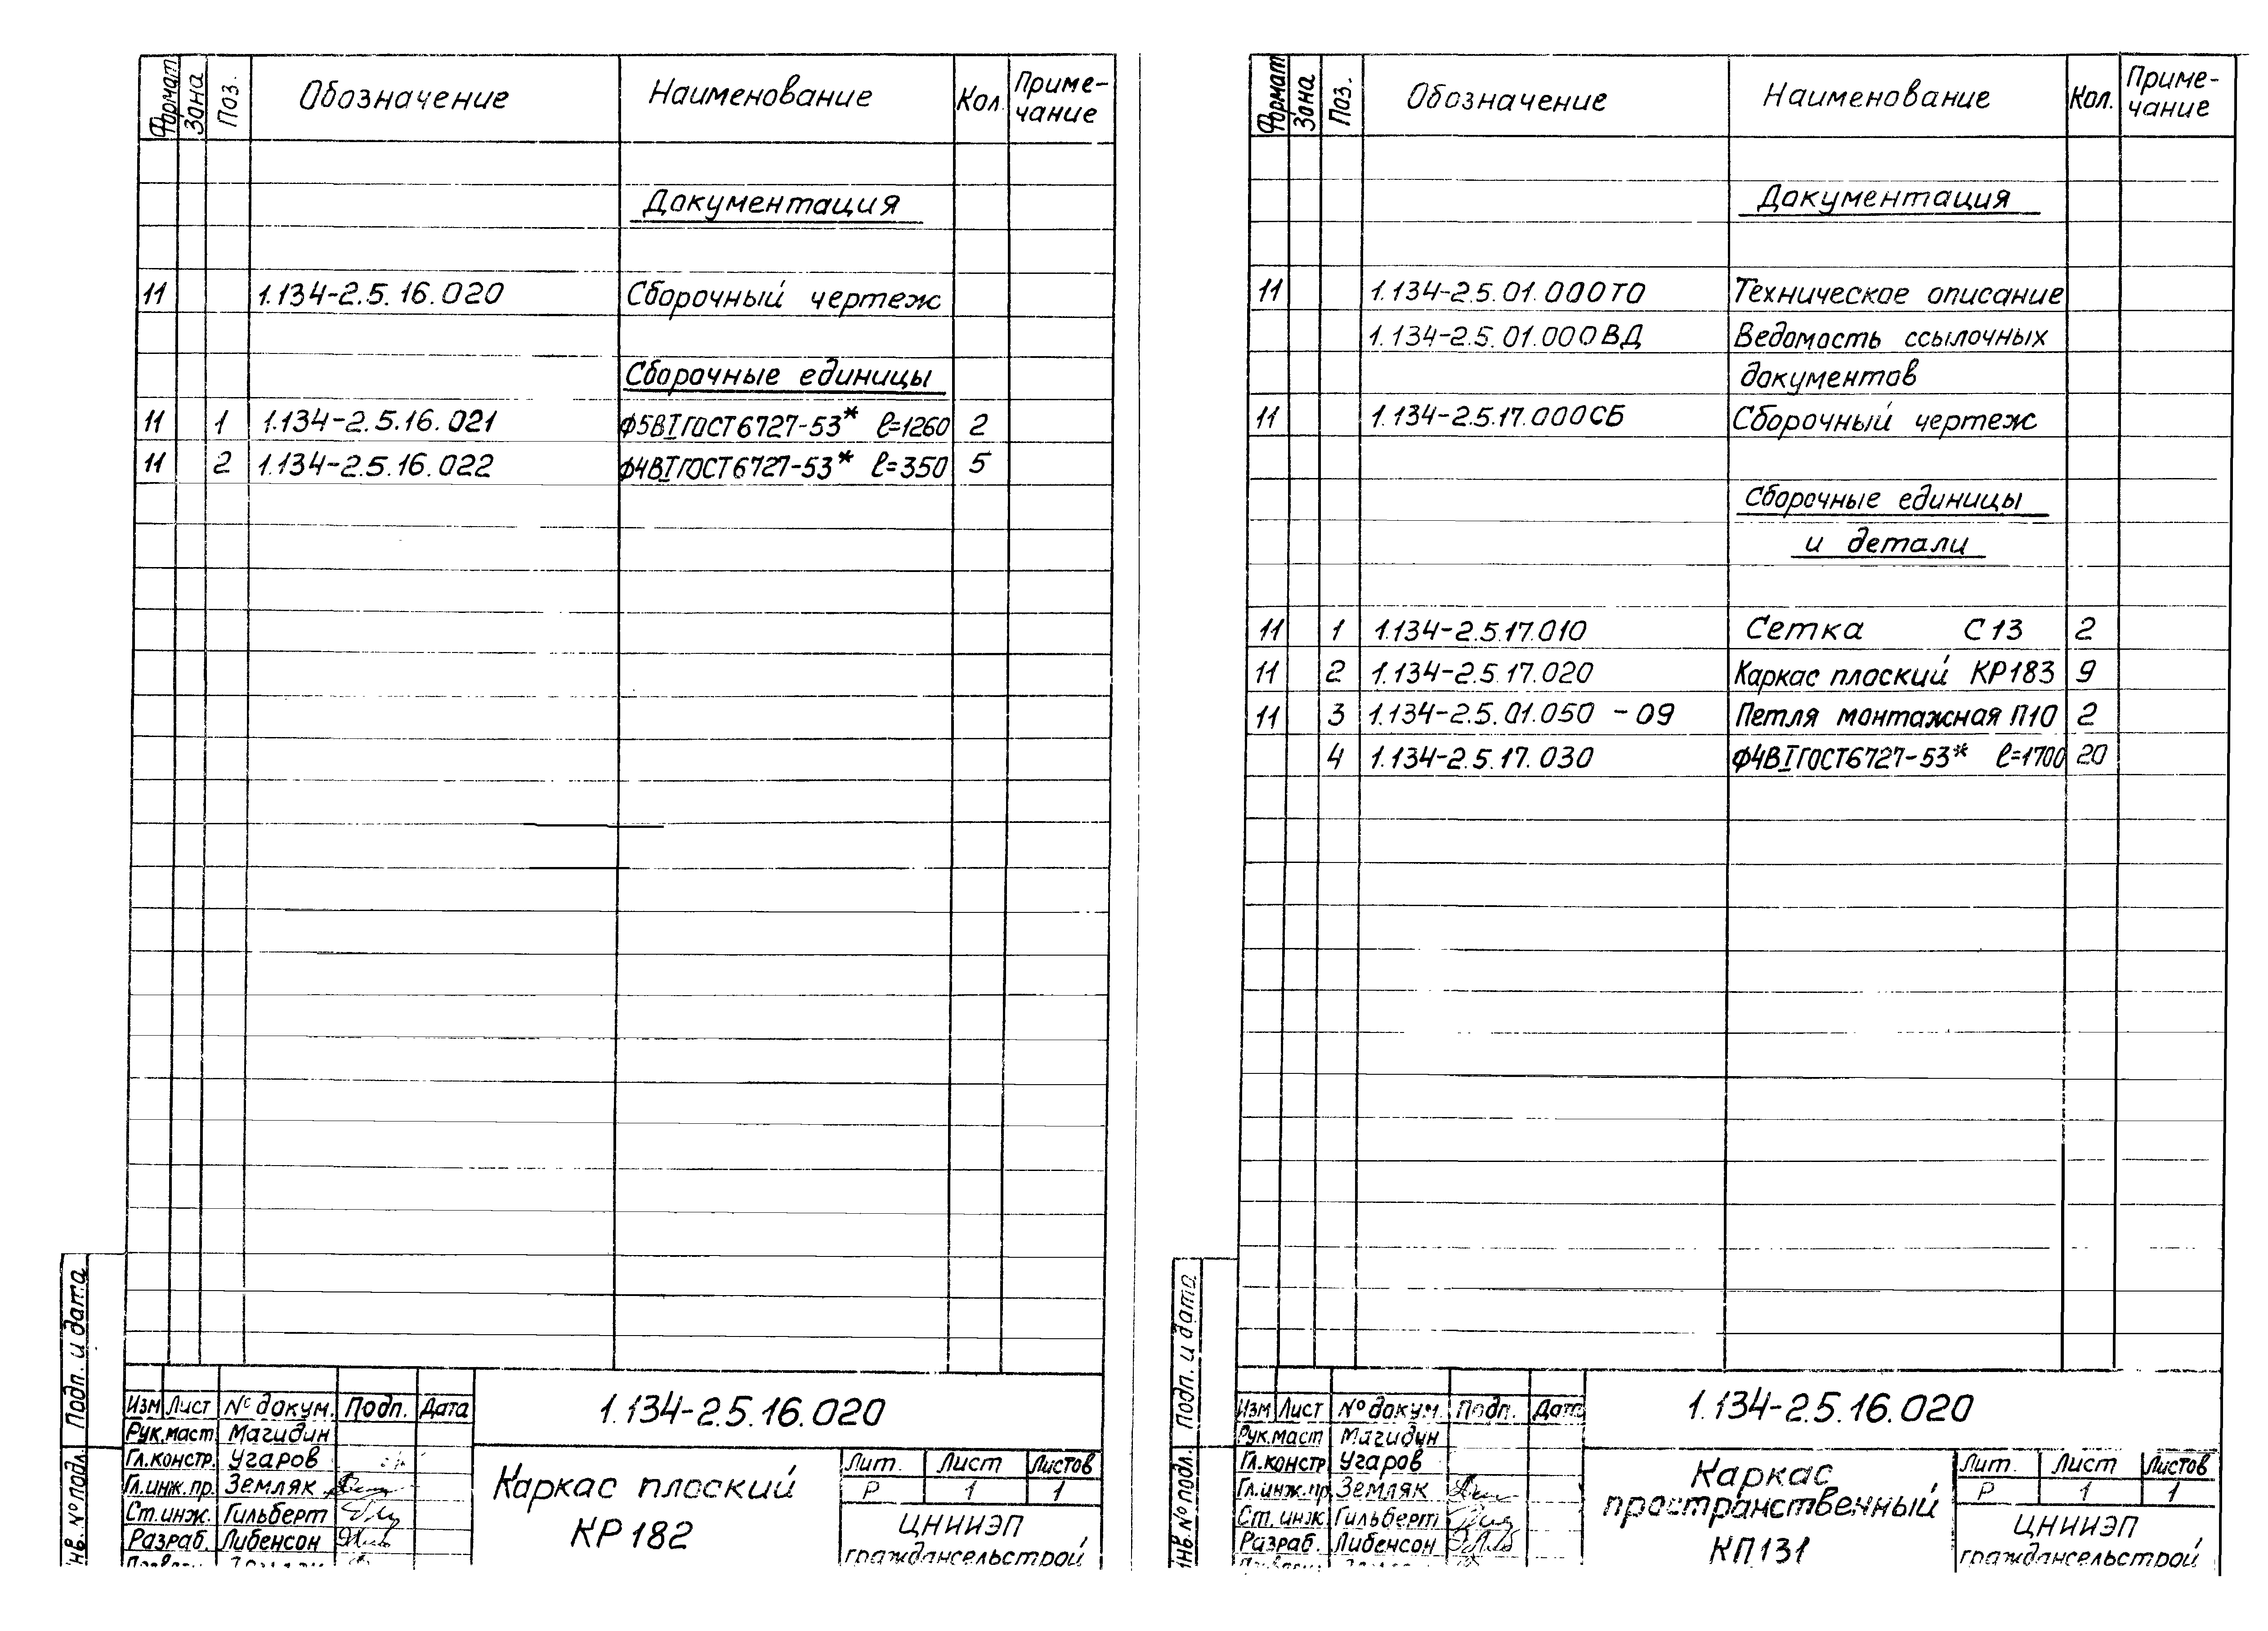 Формат Зона Поз. Обозначение Наименование Кол. Приме-
чание
Документация
11 1.134-2.5.16.020 Сборочный чертеж
Сборочные единицы
11 1 1.134-2.5.16.021 Ф5ВI ГОСТ 6727-53* ℓ=1260 2
11 2 1.134-2.5.16.022 Ф4ВI ГОСТ 6727-53* ℓ=350 5
Подп. и дата
Инв. № подл.
1.134-2.5.16.020
Изм Лист № докум. Подп. Дата
Рук.маст. Магидин
Гл.констр. Угаров
Гл.инж.пр. Земляк
Ст.инж. Гильберт
Разраб. Либенсон
Каркас плоский
КР 182
Лит. Лист Листов
Р 1 1
ЦНИИЭП
граждансельстрой
Формат Зона Поз. Обозначение Наименование Кол. Приме-
чание
Документация
11 1.134-2.5.01.000ТО Техническое описание
1.134-2.5.01.000ВД Ведомость ссылочных
документов
11 1.134-2.5.17.000СБ Сборочный чертеж
Сборочные единицы
и детали
11 1 1.134-2.5.17.010 Сетка С13 2
11 2 1.134-2.5.17.020 Каркас плоский КР183 9
11 3 1.134-2.5.01.050 -09 Петля монтажная П10 2
4 1.134-2.5.17.030 Ф4ВI ГОСТ 6727-53* ℓ=1700 20
Подп. и дата
Инв. № подл.
1.134-2.5.16.020
Изм Лист № докум. Подп. Дата
Рук.маст Магидин
Гл.констр Угаров
Гл.инж.пр. Земляк
Ст.инж Гильберт
Разраб. Либенсон
Каркас
пространственный
КП131
Лит. Лист Листов
Р 1 1
ЦНИИЭП
граждансельстрой